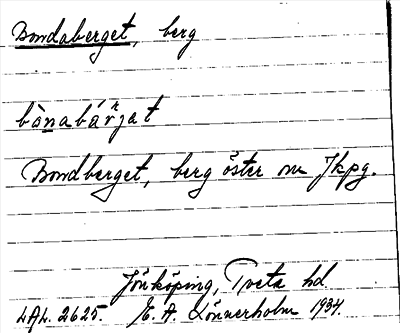 Bondaberget, berg
bònabárjat
Bondberget, berg öster om Jkpg.
Jönköping, Tveta hd
LAL. 2625. E. A. Lönnerholm 1934.